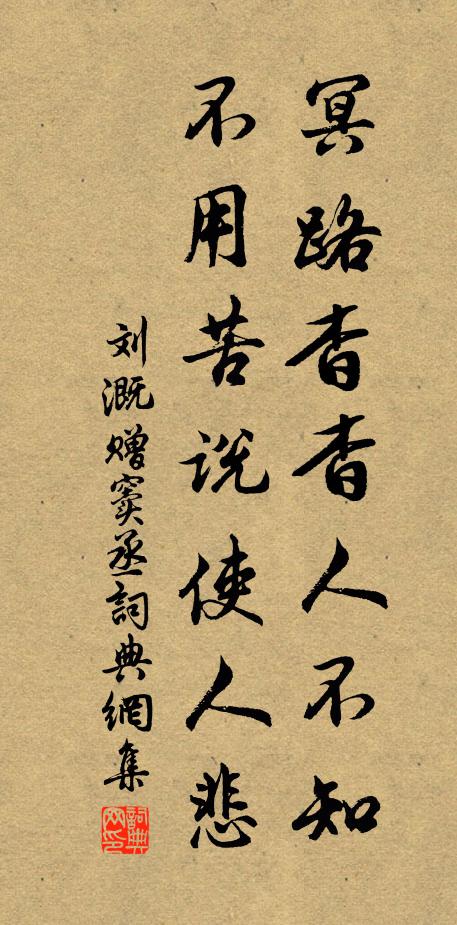 冥路杳杳人不知
不用苦说使人悲
刘溉赠窦丞詞典網集
詞典网印